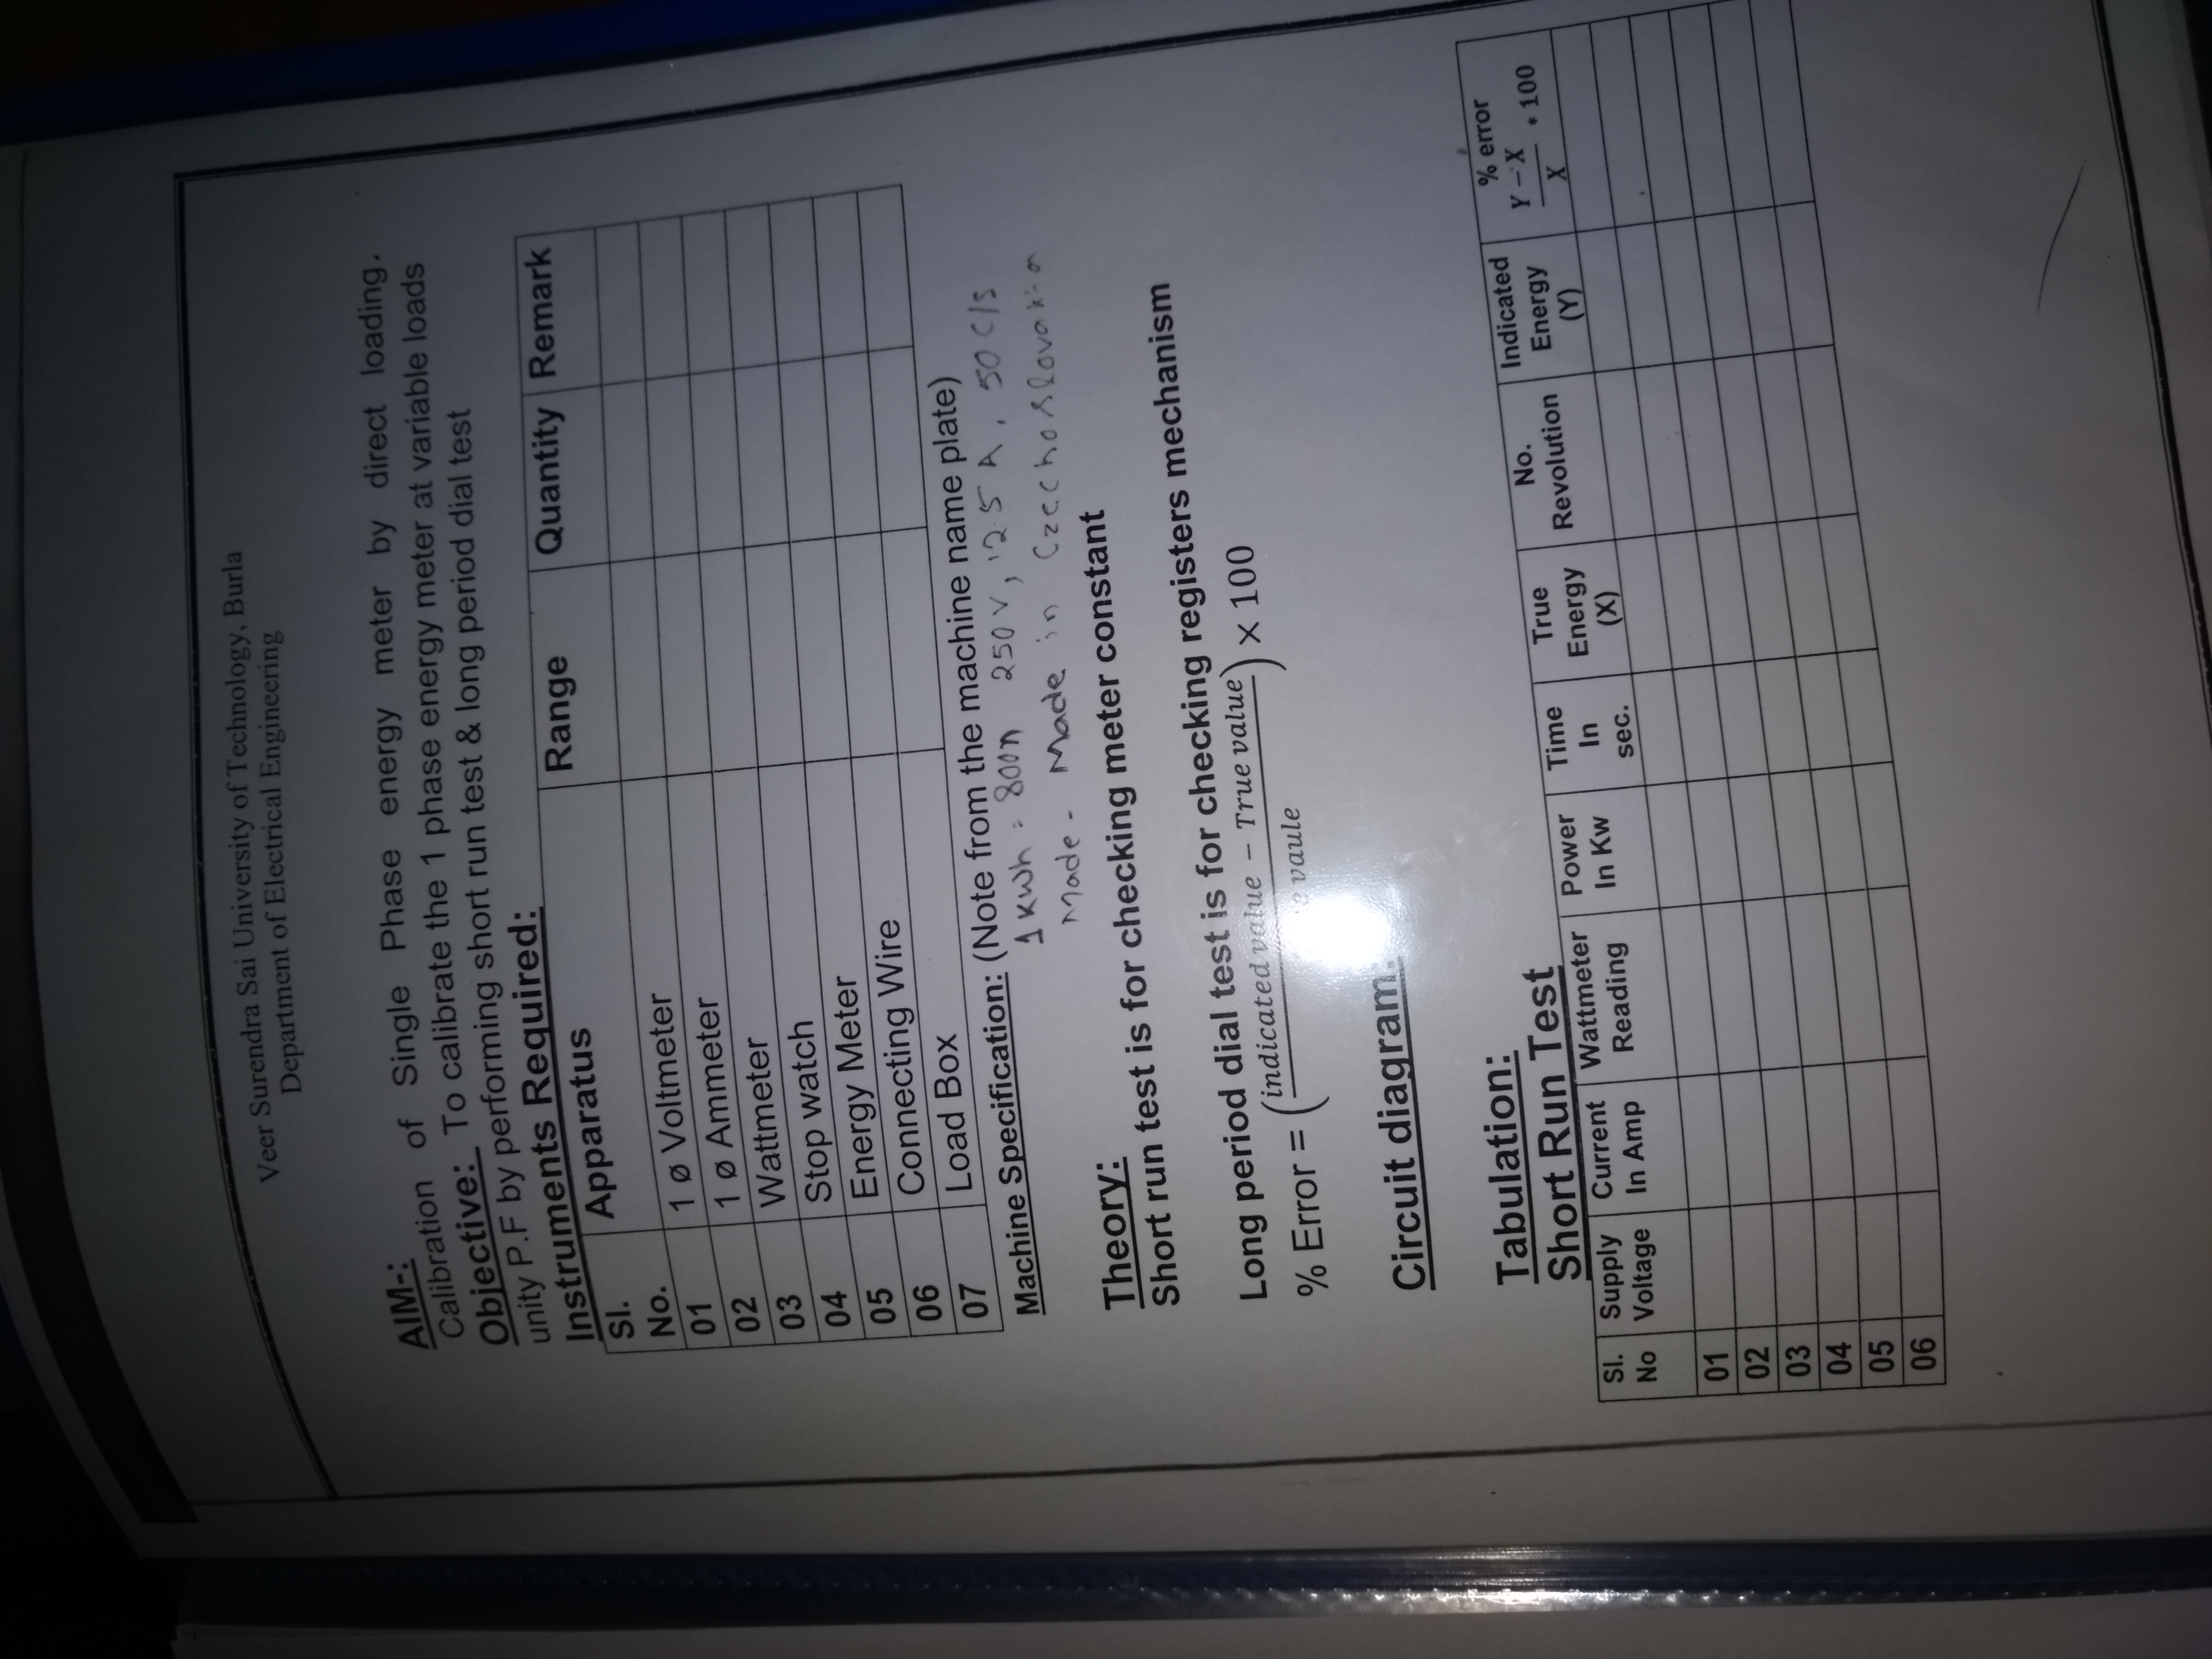 Veer Surendra Sai University of Technology, Burla
Department of Electrical Engineering
AIM-:
Calibration of Single Phase energy meter by direct loading.
Objective: To calibrate the 1 phase energy meter at variable loads
unity P.F by performing short run test & long period dial test
Instruments Required:
Sl. No. Apparatus Range Quantity Remark
01 1 ø Voltmeter
02 1 ø Ammeter
03 Wattmeter
04 Stop watch
05 Energy Meter
06 Connecting Wire
07 Load Box
Machine Specification: (Note from the machine name plate)
1 kwh = 800n 250 V, 12.5 A, 50 C/s
Made - Made in Czechoslovakia
Theory:
Short run test is for checking meter constant
Long period dial test is for checking registers mechanism
% Error = (indicated value − True value / vaule) × 100
Circuit diagram:
Tabulation:
Short Run Test
Sl. No Supply Voltage Current In Amp Wattmeter Reading Power In Kw Time In sec. True Energy (X) No. Revolution Indicated Energy (Y) % error Y − X / X * 100
01
02
03
04
05
06